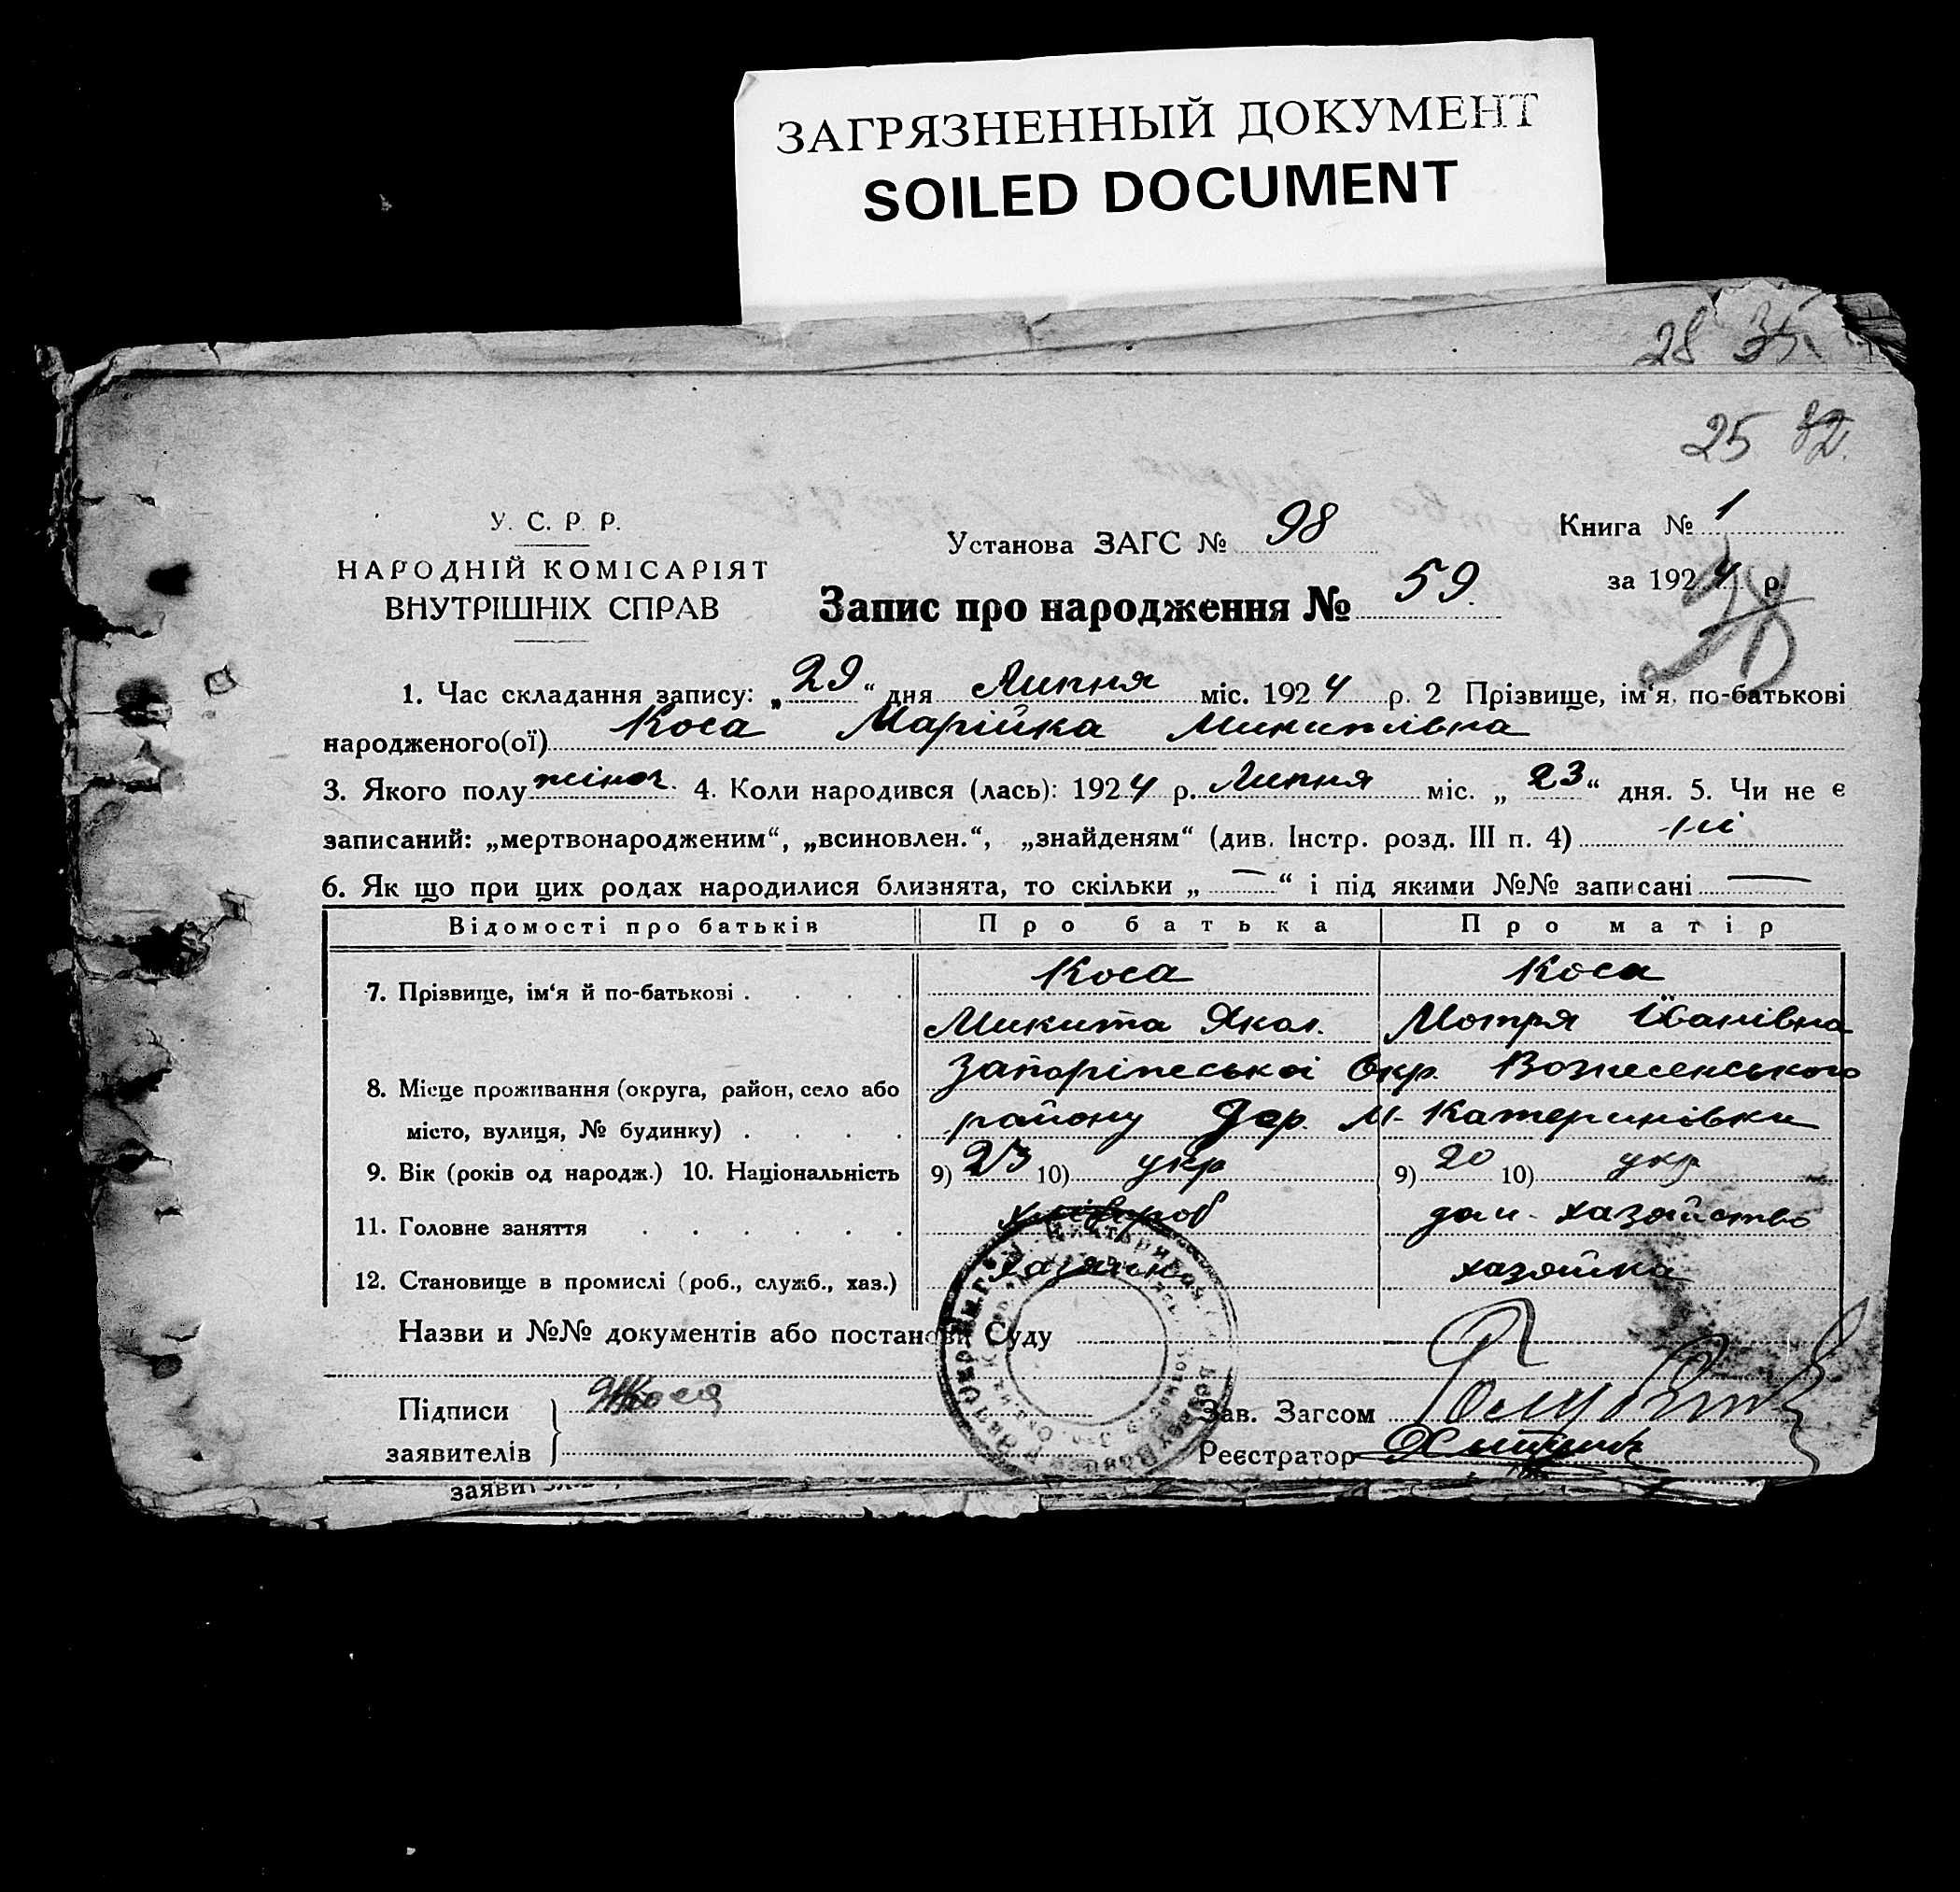 ЗАГРЯЗНЕННЫЙ ДОКУМЕНТ
SOILED DOCUMENT
28 35
25 32.
У. С. Р. Р.
НАРОДНІЙ КОМІСАРІЯТ
ВНУТРІШНІХ СПРАВ
Установа ЗАГС № 98
Запис про народження № 59.
Книга № 1
за 1924 р.
1. Час складання запису: „29“ дня Липня міс. 1924 р. 2 Прізвище, ім‘я, по-батькові
народженого(ої) Коса Марійка Микитівна
3. Якого полу жіноч. 4. Коли народився (лась): 1924 р. Липня міс. „23“ дня. 5. Чи не є
записаний: „мертвонародженим“, „всиновлен.“, „знайденям“ (див. Інстр. розд. III п. 4) ні
6. Як що при цих родах народилися близнята, то скільки „—“ і під якими №№ записані —
Відомості про батьків Про батька Про матір
7. Прізвище, ім‘я й по-батькові . . . . Коса Коса
Микита Яков. Мотря Іванівна
8. Місце проживання (округа, район, село або Запоріжської Окр. Вознесенського
місто, вулиця, № будинку) . . . . району Дер. М-Катеринівки
9. Вік (років од народж.) 10. Національність 9) 23 10) укр 9) 20 10) укр
11. Головне заняття . . . . . . хлібороб дом. хазяйство
12. Становище в промислі (роб., служб., хаз.) хазяїн хазяйка
Назви и №№ документів або постанови Суду
Підписи Коса
заявителів
Зав. Загсом
Реєстратор